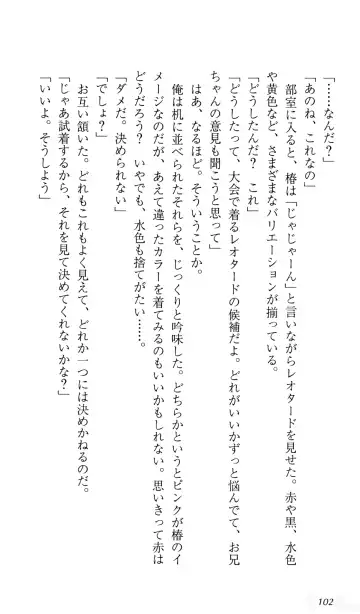 「……なんだ？」
「あのね、これなの」
部室に入ると、椿は「じゃじゃーん」と言いながらレオタードを見せた。赤や黒、水色
や黄色など、さまざまなバリエーションが揃っている。
「どうしたんだ？　これ」
「どうしたって、大会で着るレオタードの候補だよ。どれがいいかずっと悩んでて、お兄
ちゃんの意見も聞こうと思って」
はあ、なるほど。そういうことか。
俺は机に並べられたそれらを、じっくりと吟味した。どちらかというとピンクが椿のイ
メージなのだが、あえて違ったカラーを着てみるのもいいかもしれない。思いきって赤は
どうだろう？　いやでも、水色も捨てがたい……。
「ダメだ。決められない」
「でしょ？」
お互い頷いた。どれもこれもよく見えて、どれか一つには決めかねるのだ。
「じゃあ試着するから、それを見て決めてくれないかな？」
「いいよ。そうしよう」
102